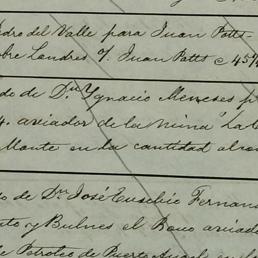 edro del Valle para Juan Potts
bre Londres f. Juan Potts c 45½
do de Dn. Ygnacio Meneses p
4. aviador de la mina "La
Monte en la cantidad
o de Dn. José Eusebio Fernan
to y Bulnes el Roco aviad
de Petroleo de Puerto Angel en la